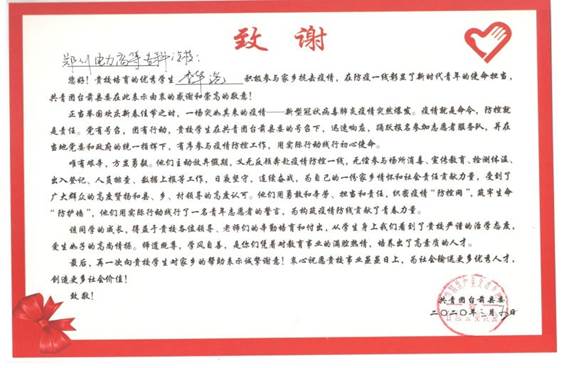 致谢
郑州电力高等专科学校:
您好!贵校培育的优秀学生 积极参与家乡抗击疫情,在防疫一线彰显了新时代青年的使命担当,
共青团台前县委在此表示由衷的感谢和崇高的敬意!
正当举国欢庆新春佳节之时,一场突如其来的疫情——新型冠状病毒肺炎疫情突然爆发。疫情就是命令,防控就
是责任。党有号召,团有行动,贵校学生在共青团台前县委的号召下,迅速响应,踊跃报名参加志愿者服务队,并在
当地党委和政府的统一指挥下,有序参与疫情防控工作,用实际行动践行初心使命。
唯有艰辛,方显勇毅。他们主动放弃假期,义无反顾奔赴疫情防控一线,无偿参与场所消毒、宣传教育、检测体温、
出入登记、人员排查、数据上报等工作,日夜坚守,连续奋战,为自己的一份家乡情怀和社会责任贡献力量,受到了
广大群众的高度赞扬和县、乡、村领导的高度认可。他们用勇敢和辛劳、担当和责任,织密疫情“防控网”,筑牢生命
“防护墙”,他们用实际行动践行了一名青年志愿者的誓言,为构筑疫情防线贡献了青春力量。
该同学的成长,得益于贵校各位领导、老师们的辛勤培育和付出,从学生身上我们看到了贵校严谨的治学态度,
爱生如子的高尚情操。师道绝尊,学风自善,是你们凭着对教育事业的满腔热情,培养出了高素质的人才。
最后,再一次向贵校学生对家乡的帮助表示诚挚谢意!衷心祝愿贵校事业蒸蒸日上,为社会输送更多优秀人才,
创造更多社会价值!
致敬!
共青团台前县委
二〇二〇年三月 日